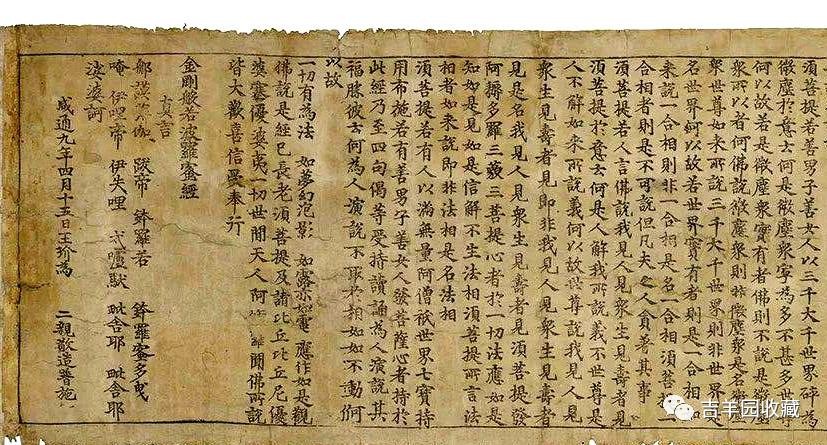 須菩提若善男子善女人以三千大千世界碎為
微塵於意云何是微塵眾寧為多不甚多世尊
何以故若是微塵眾實有者佛則不說是微塵
眾所以者何佛說微塵眾則非微塵眾是名微塵
眾世尊如來所說三千大千世界則非世界是
名世界何以故若世界實有者則是一合相如
來說一合相則非一合相是名一合相須菩提一
合相者則是不可說但凡夫之人貪著其事
須菩提若人言佛說我見人見眾生見壽者見
須菩提於意云何是人解我所說義不世尊是
人不解如來所說義何以故世尊說我見人見
眾生見壽者見即非我見人見眾生見壽者
見是名我見人見眾生見壽者見須菩提發
阿耨多羅三藐三菩提心者於一切法應如是
知如是見如是信解不生法相須菩提所言法
相者如來說即非法相是名法相
須菩提若有人以滿無量阿僧祇世界七寶持
用布施若有善男子善女人發菩薩心者持於
此經乃至四句偈等受持讀誦為人演說其
福勝彼云何為人演說不取於相如如不動何
以故
一切有為法 如夢幻泡影 如露亦如電 應作如是觀
佛說是經已長老須菩提及諸比丘比丘尼優
婆塞優婆夷一切世間天人阿 羅聞佛所說
皆大歡喜信受奉行
金剛般若波羅蜜經
真言
那謨薄伽 跋帝 鉢羅若 鉢羅蜜多曳
唵 伊哩帝 伊失哩 戍嚧馱 毗舍耶 毗舍耶
娑婆訶
咸通九年四月十五日王玠為 二親敬造普施
吉羊园收藏